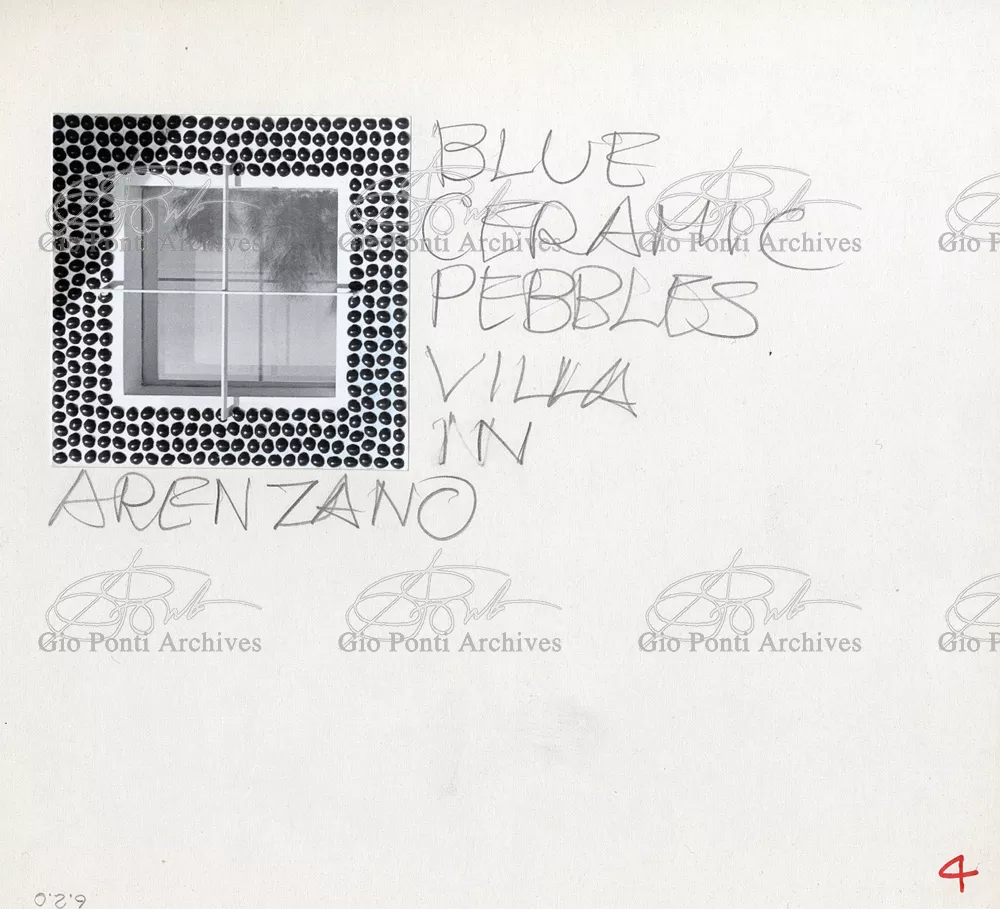 BLUE
CERAMIC
PEBBLES
VILLA
IN
ARENZANO
Gio Ponti Archives
Gio Ponti Archives
Gio Ponti Archives
Gio P
Gio Ponti Archives
Gio Ponti Archives
Gio Ponti Archives
Gio P
4